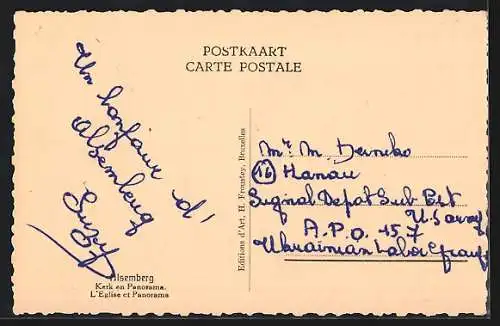 POSTKAART
CARTE POSTALE
Un bonjour d'
Alsemberg
Alsemberg
Kerk en Panorama.
L'Eglise et Panorama
Editions d'Art, H. Froustey, Bruxelles
Mr. M. Derneko
(16) Hanau
Signal Depot Sub Pct
U.S. army
A.P.O. 757
Ukrainian Labor